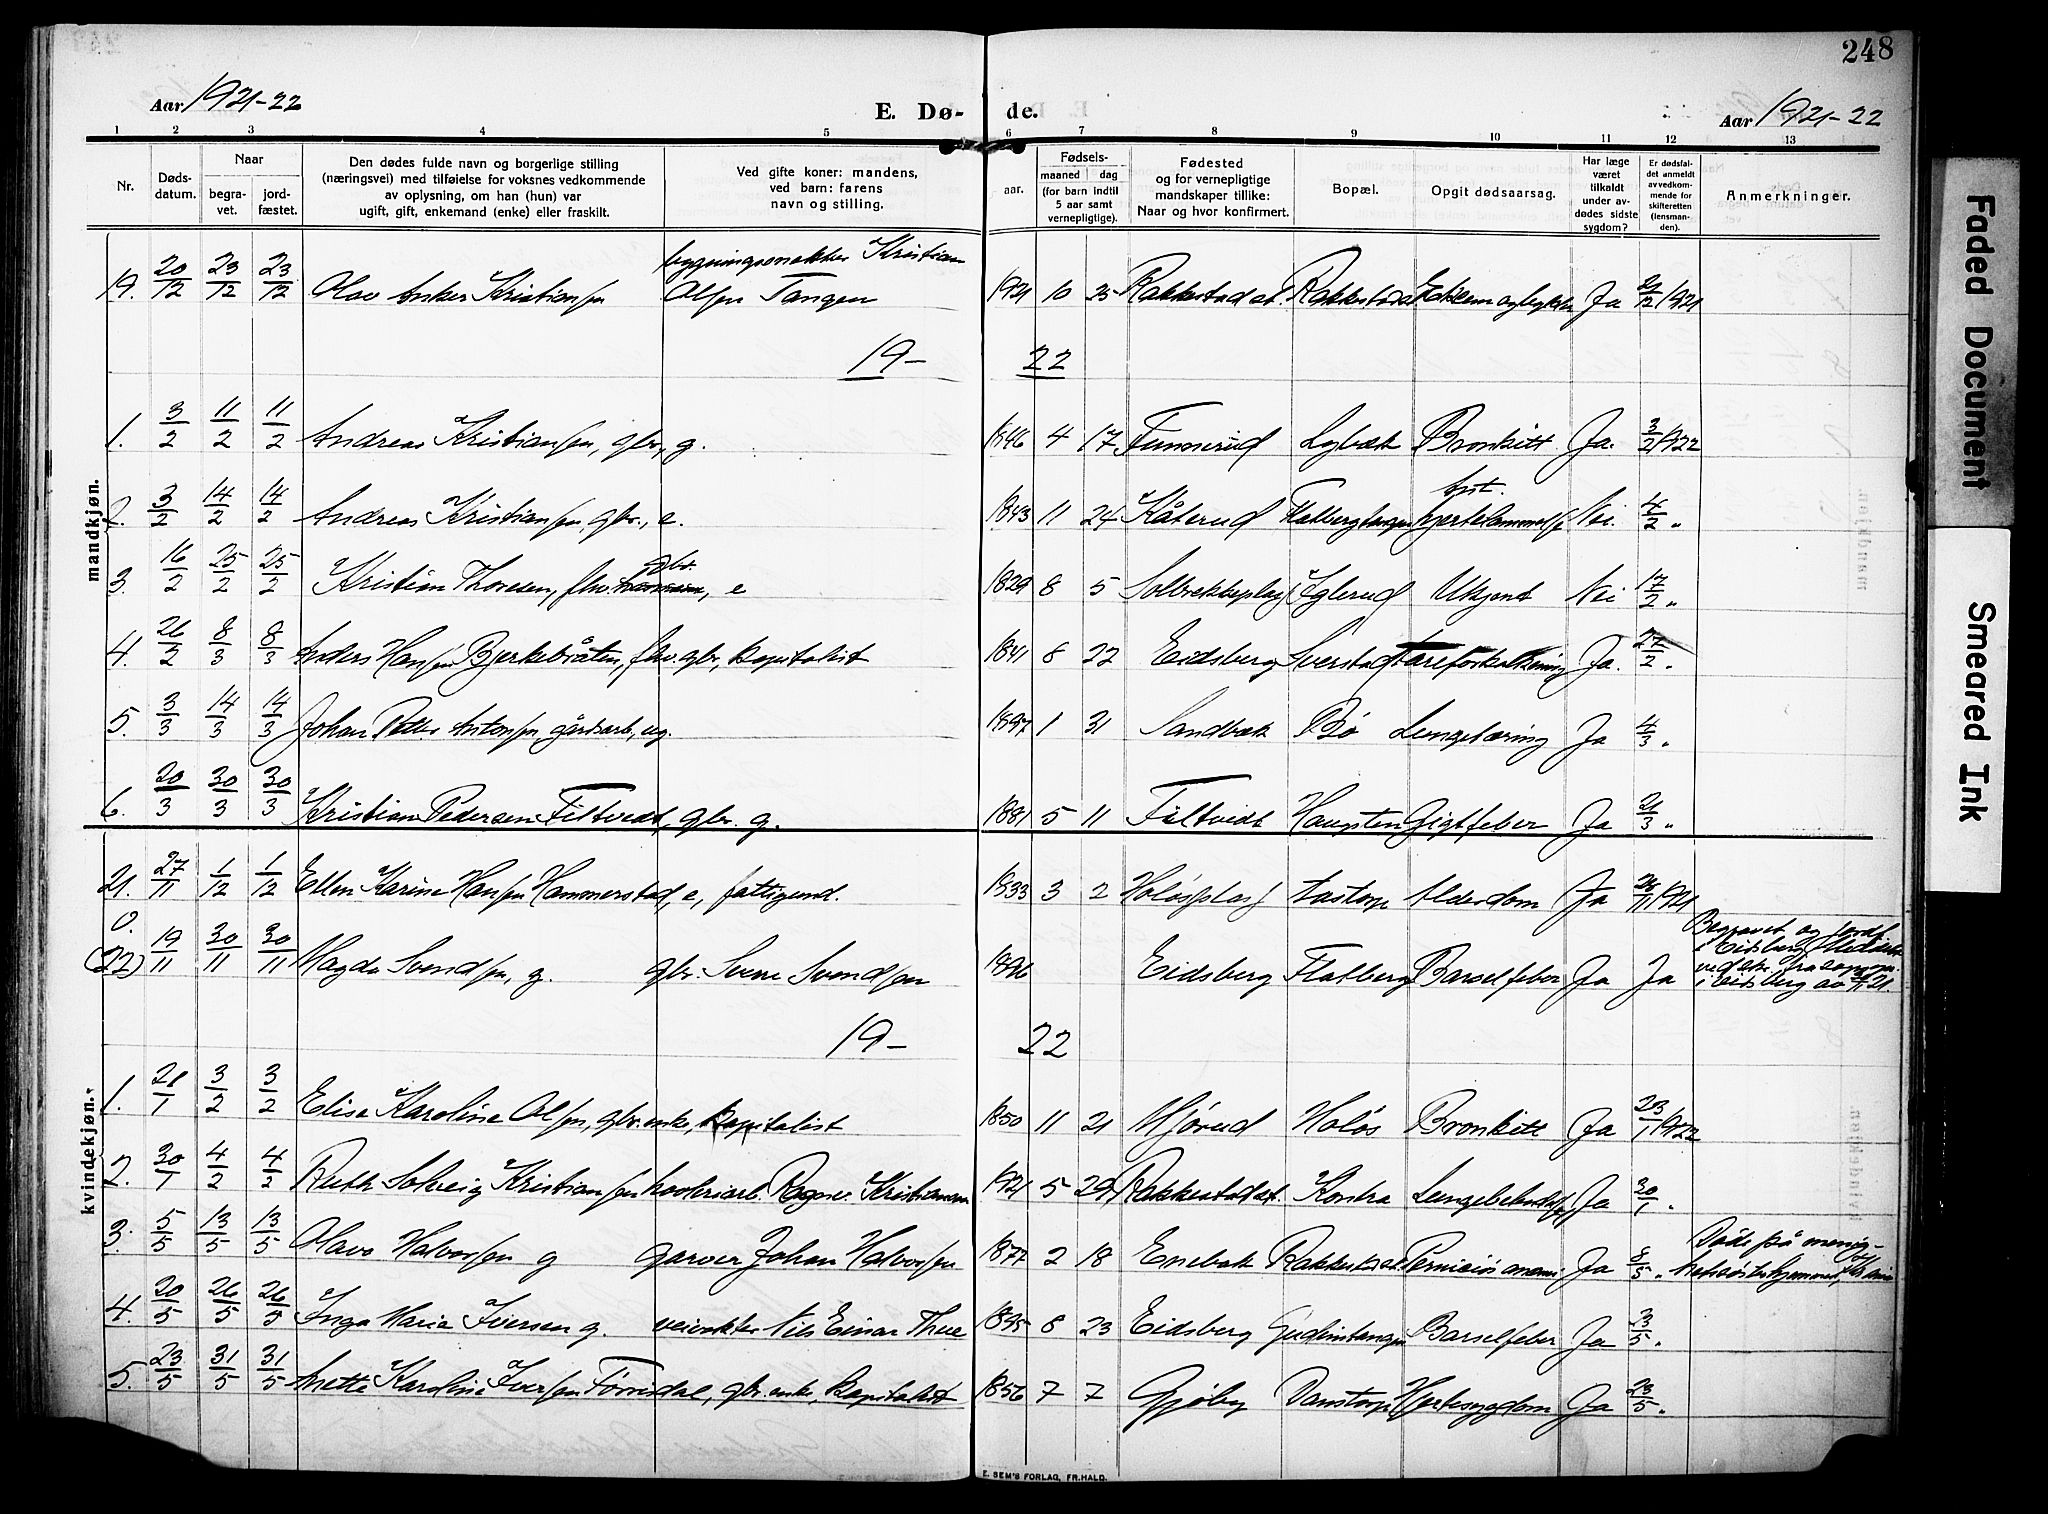 248
Aar 1921-22
E. Dø-
de.
Aar 1921-22
1 2 3 4 5 6 7 8 9 10 11 12 13
Nr.
Døds-
datum.
Naar
begra-
vet.
jord-
fæstet.
Den dødes fulde navn og borgerlige stilling
(næringsvei) med tilføielse for voksnes vedkommende
av oplysning, om han (hun) var
ugift, gift, enkemand (enke) eller fraskilt.
Ved gifte koner: mandens,
ved barn: farens
navn og stilling.
Fødsels-
aar. maaned dag
(for barn indtil
5 aar samt
vernepligtige).
Fødested
og for vernepligtige
mandskaper tillike:
Naar og hvor konfirmert.
Bopæl.
Opgit dødsaarsag.
Har læge
været
tilkaldt
under av-
dødes sidste
sygdom?
Er dødsfal-
det anmeldt
av vedkom-
mende for
skifteretten
(lensman-
den).
Anmerkninger.
mandkjøn.
19. 20/12 23/12 23/12 Olav Anker Kristiansen Kristian Olsen Tangen 1921 10 25 Rakkestad st. Rakkestad Ja 21/12 1921
19- 22
1. 3/2 11/2 11/2 Andreas Kristiansen, gbr., g. 1846 4 17 Lybæk Bronkitt Ja. 3/2 1922
2. 3/2 14/2 14/2 Andreas Kristiansen, gbr., e. 1843 11 24 Kåterud Flatbergtangen hjertelammelse Nei 4/2 "
3. 16/2 25/2 25/2 Kristian Thoresen, fhv. gbr., e 1829 8 5 Iglerud Ukjent Nei 17/2 "
4. 26/2 8/3 8/3 Anders Hansen Bjerkebråten, fhv. gbr., kapitalist 1841 8 22 Eidsberg Sverstad Åreforkalkning Ja. 27/2 "
5. 3/3 14/3 14/3 Johan Petter Antonsen, gårdsarb., ug. 1897 1 31 Sandbæk Bø Lungetæring Ja 4/3 "
6. 20/3 30/3 30/3 Kristian Pedersen Filtvedt, gbr. g. 1881 5 11 Filtvedt Haugsten Gigtfeber Ja 21/3 "
kvindekjøn.
21. 27/11 1/12 1/12 Ellen Karine Hansen Hammerstad, e, fattigund. 1833 3 2 Aastorp Alderdom Ja 28/11 1921
0.
(22) 19/11 30/11 30/11 Magda Svendsen, g. gbr. Svend Svendsen 1896 Eidsberg Flatberg Barselfeber Ja Ja Begravet og jordf.
i Eidsberg
ved
i Eidsberg av 21.
19- 22
1. 21/1 3/2 3/2 Elise Karoline Olsen, gbr. enke, kapitalist 1850 11 21 Mjørud Holøs Bronkitt Ja 23/1 1922
2. 30/1 4/2 4/2 Ruth Solveig Kristiansen Ragnv. Kristiansen 1921 5 29 Rakkestad st. Kontra Lungebetendelse Ja 30/1 "
3. 5/5 13/5 13/5 Olava Halvorsen g garver Johan Halvorsen 1877 2 18 Enebak Rakkestad st Perniciøs anemi Ja 8/5 " Døde på menig-
hetssøsterhjemmet,
4. 20/5 26/5 26/5 Inga Marie Iversen g. veivokter Nils Einar Thue 1895 8 23 Eidsberg Gudimtangen Barselfeber Ja 23/5 "
5. 23/5 31/5 31/5 Anette Karoline Iversen Tørrisdal, gbr. enke, kapitalist 1856 7 7 Gjøby Danstorp Hjertesygdom Ja 23/5 "
E. SEM'S FORLAG, FR.HALD.
Faded Document
Smeared Ink